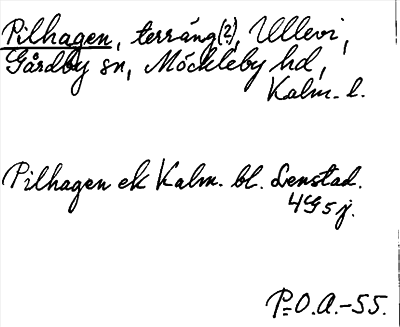 Pilhagen, terräng(?), Ullevi,
Gårdby sn, Möckleby hd,
Kalm. l.
Pilhagen ek Kalm. bl. Lenstad.
4G5j.
P=O.A.-55.